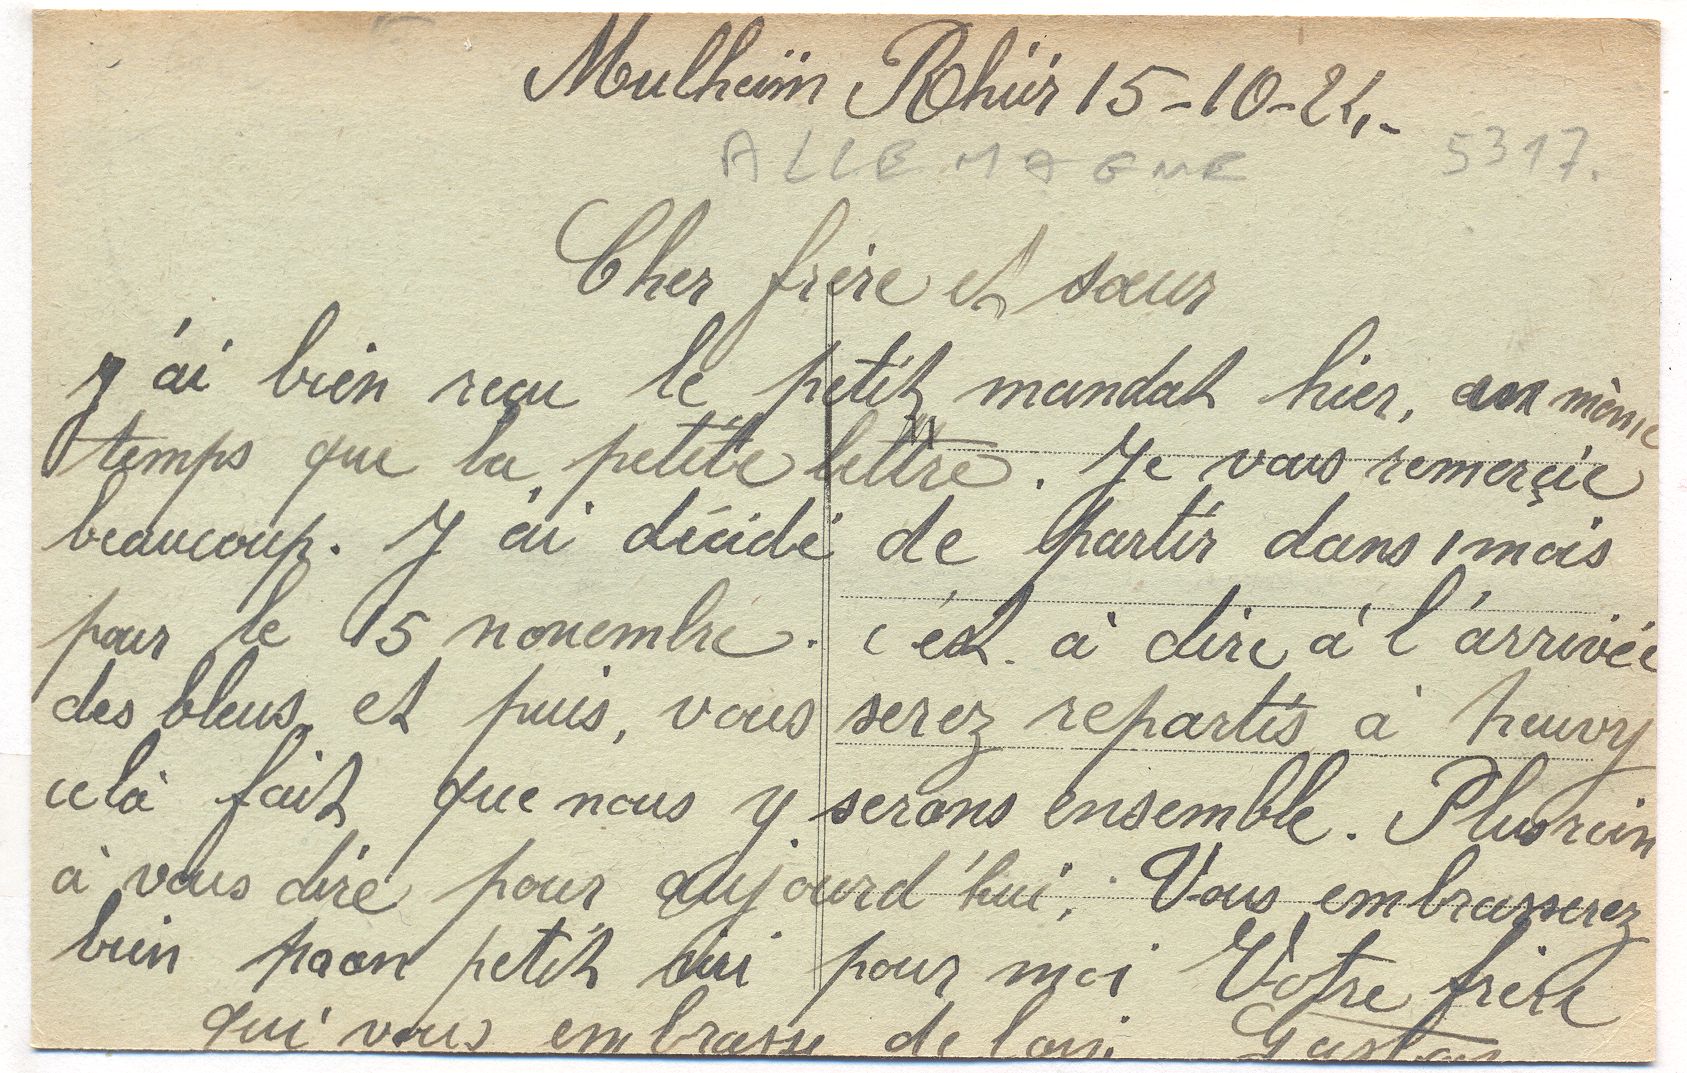 Mulheïm Rhür 15-10-24.-
ALLEMAGNE 5317.
Cher frère et sœur
J'ai bien reçu le petit mandat hier, en même
temps que la petite lettre. Je vous remerçie
beaucoup. J'ai décidé de partir dans 1 mois
pour le 15 novembre. c'est à dire à l'arrivée
des bleus, et puis, vous serez repartis à heuvy
celà fait que nous y serons ensemble. Plus rien
à vous dire pour aujourd'hui. Vous embrasserez
bien petit pour moi Votre frère
qui vous embrasse de loin. Gaston